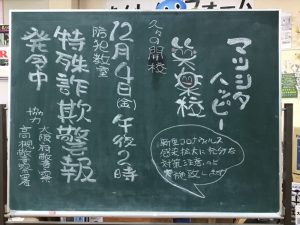 マツシタ
ハッピー
笑楽校
久々の開校
12月4日(金)午後2時
防犯教室
特殊詐欺警報
発令中
協力
大阪府警察
高槻警察署
新型コロナウィルス
感染拡大に充分な
対策、注意のもと
実施致します
フォーム